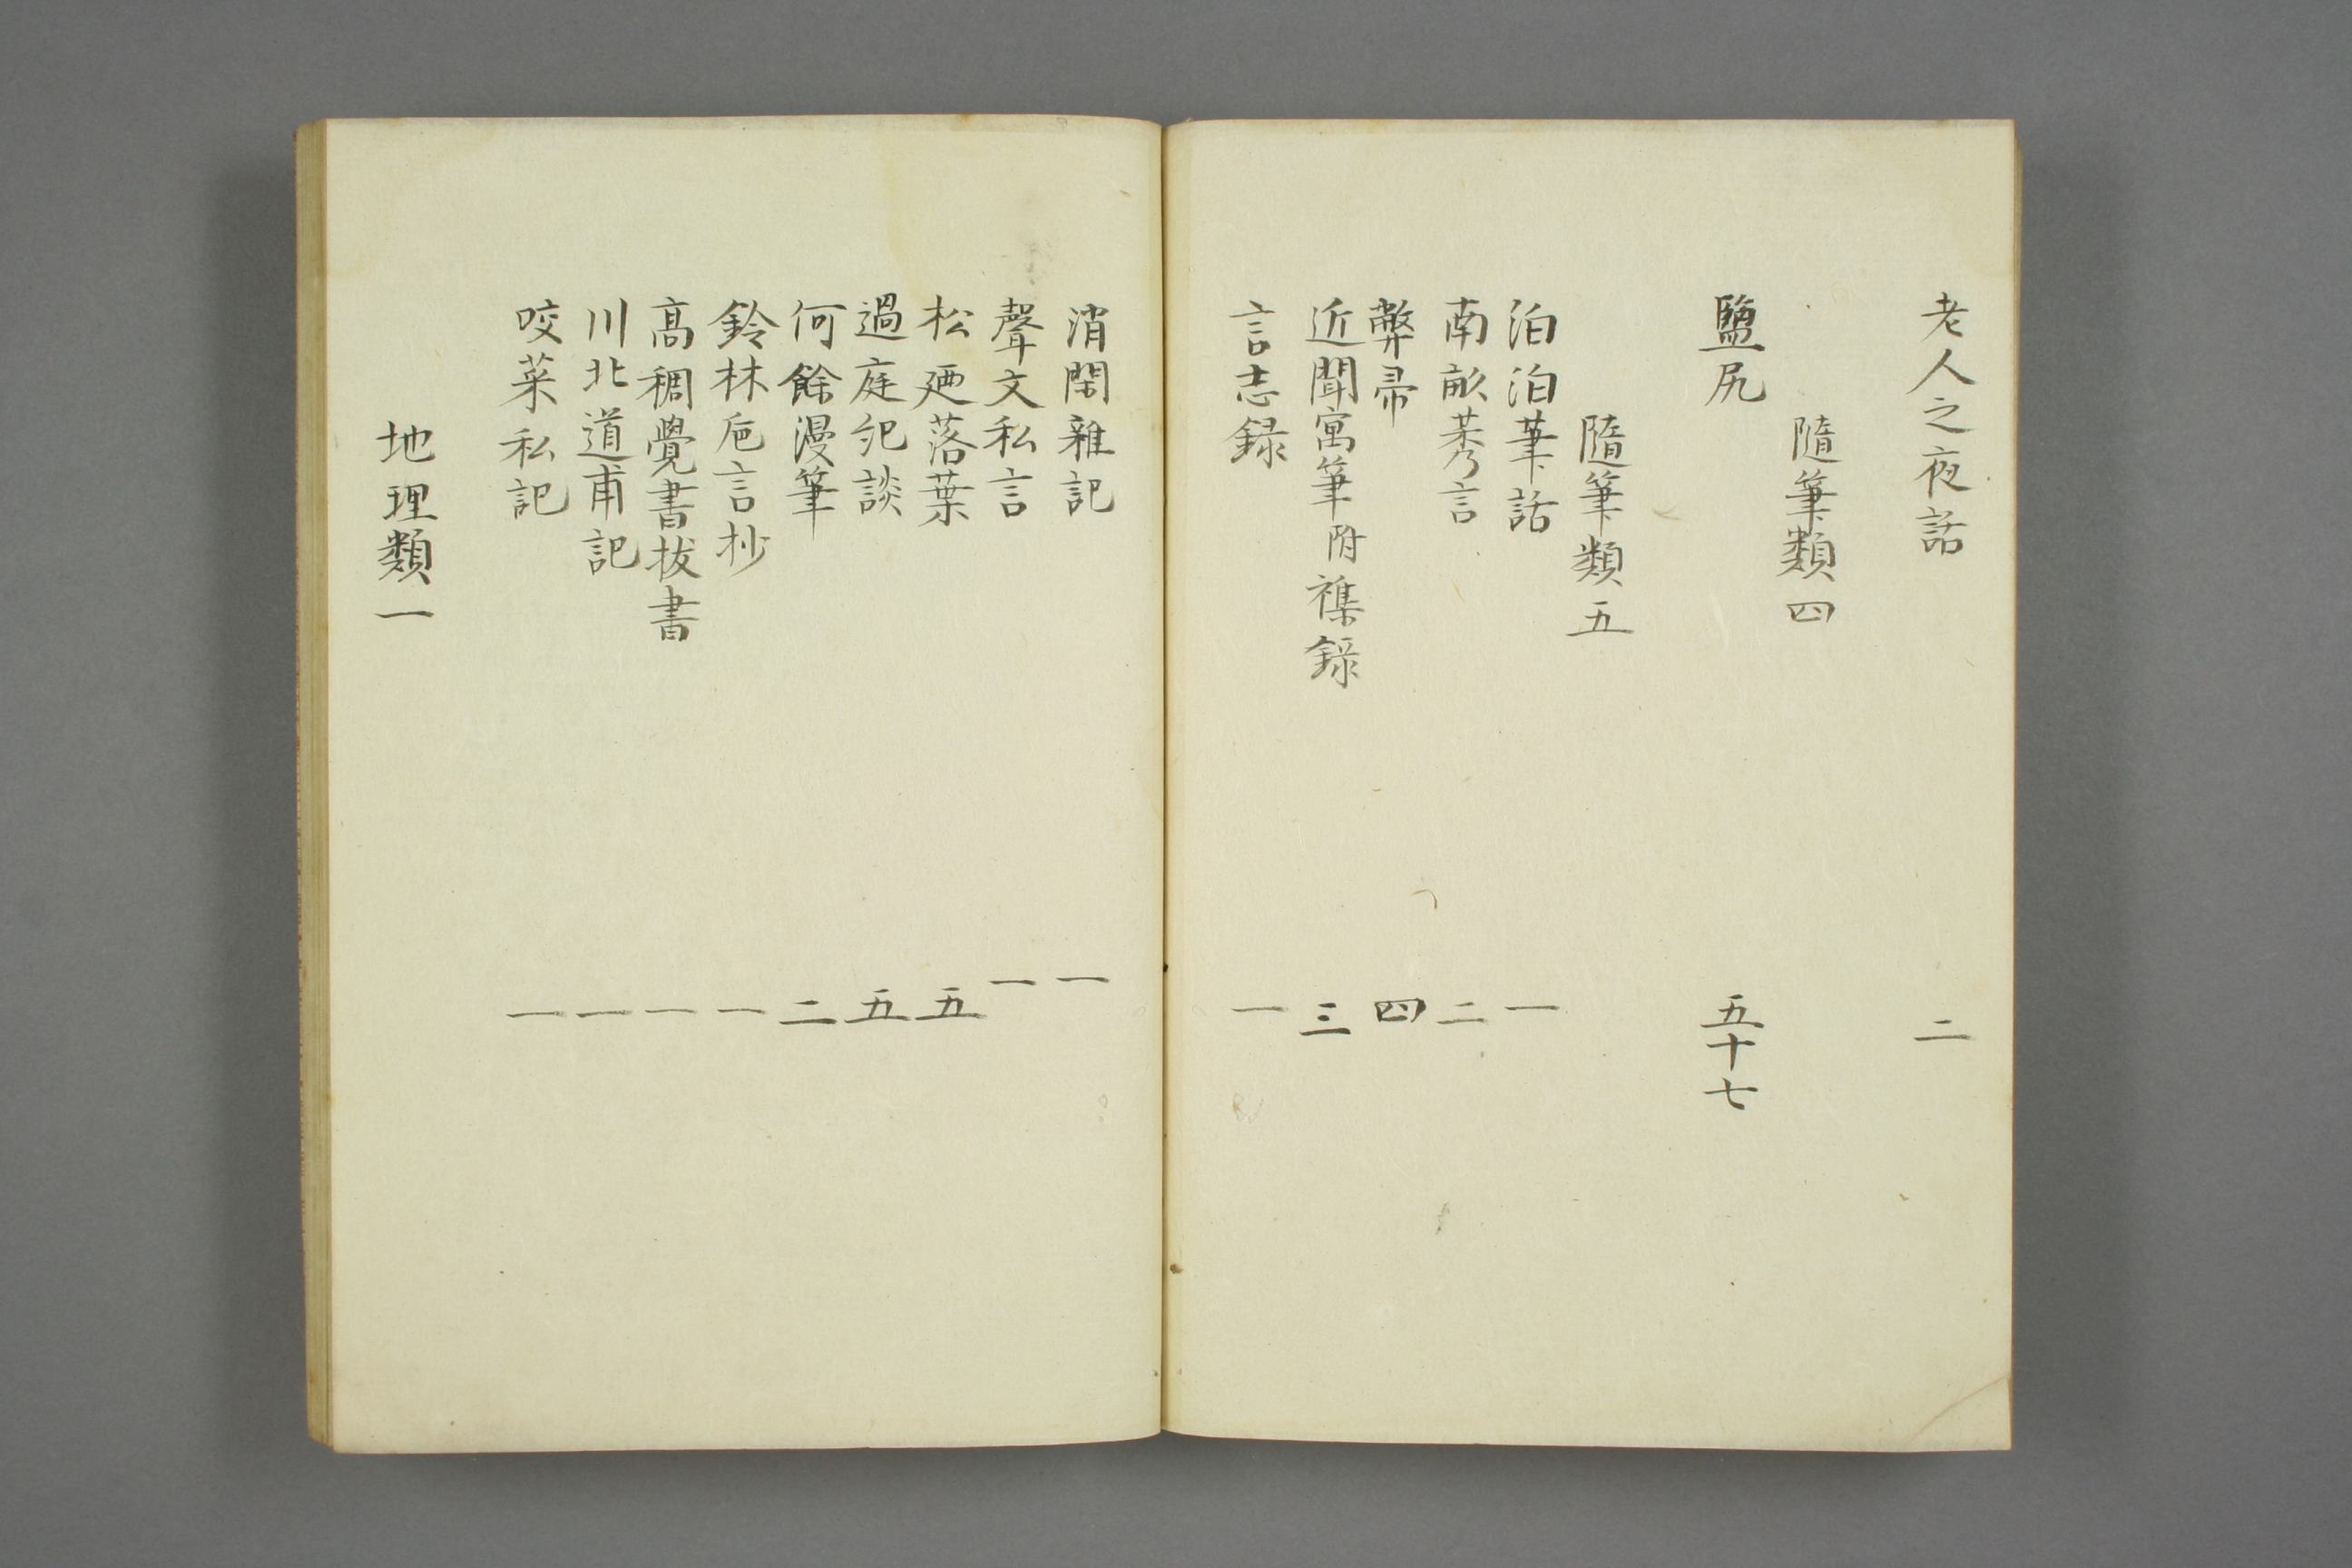 老人之夜話 二
隨筆類四
鹽尻 五十七
隨筆類五
泊泊筆話 一
南畝莠言 二
弊帚 四
近聞寓筆附襍錄 三
言志録 一
消閑雜記 一
聲文私言 一
松廼落葉 五
過庭紀談 五
何餘漫筆 二
鈴林卮言抄 一
高稠覺書拔書 一
川北道甫記 一
咬菜私記 一
地理類一